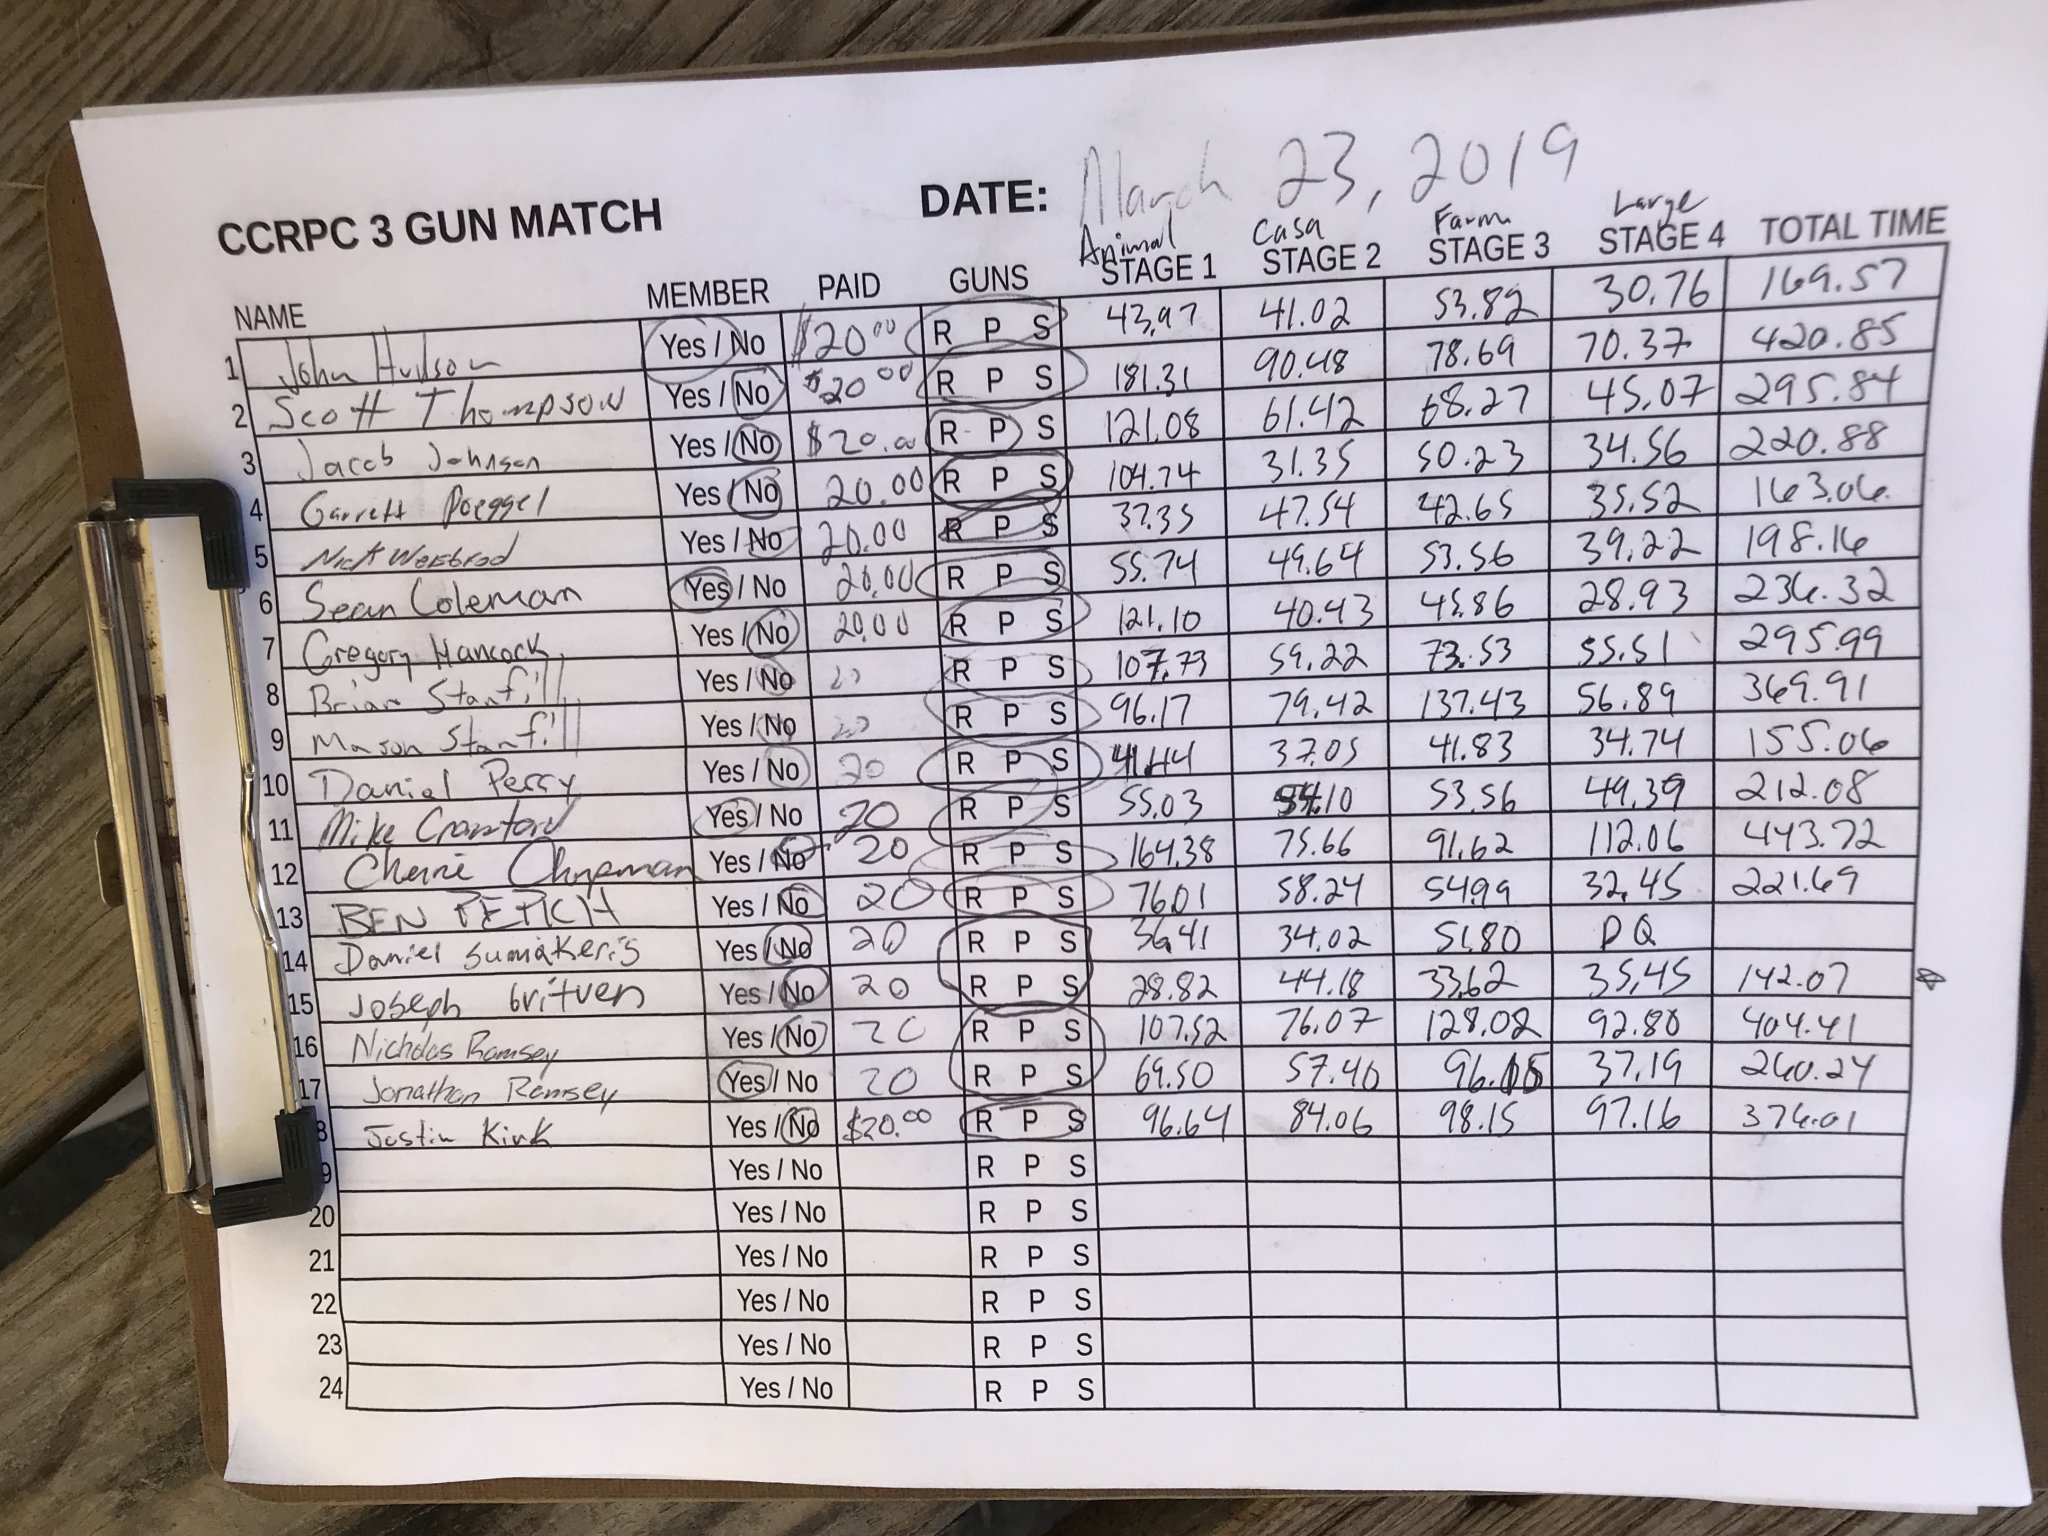 CCRPC 3 GUN MATCH DATE: March 23, 2019
Animal Casa Farm Large
NAME MEMBER PAID GUNS STAGE 1 STAGE 2 STAGE 3 STAGE 4 TOTAL TIME
1 John Hudson Yes / No $20.00 R P S 43.97 41.02 53.82 30.76 169.57
2 Scott Thompson Yes / No $20.00 R P S 181.31 90.48 78.69 70.37 420.85
3 Jacob Johnson Yes / No $20.00 R P S 121.08 61.42 68.27 45.07 295.84
4 Garrett Poeggel Yes / No 20.00 R P S 104.74 31.35 50.23 34.56 220.88
5 Nick Yes / No 20.00 R P S 37.35 47.54 42.65 35.52 163.06
6 Sean Coleman Yes / No 20.00 R P S 55.74 49.64 53.56 39.22 198.16
7 Gregory Hancock Yes / No 20.00 R P S 121.10 40.43 45.86 28.93 236.32
8 Brian Stanfill Yes / No 20 R P S 107.73 59.22 73.53 55.51 295.99
9 Mason Stanfill Yes / No 20 R P S 96.17 79.42 137.43 56.89 369.91
10 Daniel Perry Yes / No 20 R P S 41.44 37.05 41.83 34.74 155.06
11 Mike Yes / No 20 R P S 55.03 54.10 53.56 49.39 212.08
12 Cherie Chapman Yes / No 20 R P S 164.38 75.66 91.62 112.06 443.72
13 BEN Yes / No 20 R P S 76.01 58.24 54.99 32.45 221.69
14 Daniel Sumakeris Yes / No 20 R P S 36.41 34.02 51.80 DQ
15 Joseph Yes / No 20 R P S 28.82 44.18 33.62 35.45 142.07
16 Nicholas Ramsey Yes / No 20 R P S 107.52 76.07 128.02 92.80 404.41
17 Jonathon Ramsey Yes / No 20 R P S 69.50 57.40 96.15 37.19 260.24
8 Justin Kirk Yes / No $20.00 R P S 96.64 84.06 98.15 97.16 376.01
9 Yes / No R P S
20 Yes / No R P S
21 Yes / No R P S
22 Yes / No R P S
23 Yes / No R P S
24 Yes / No R P S